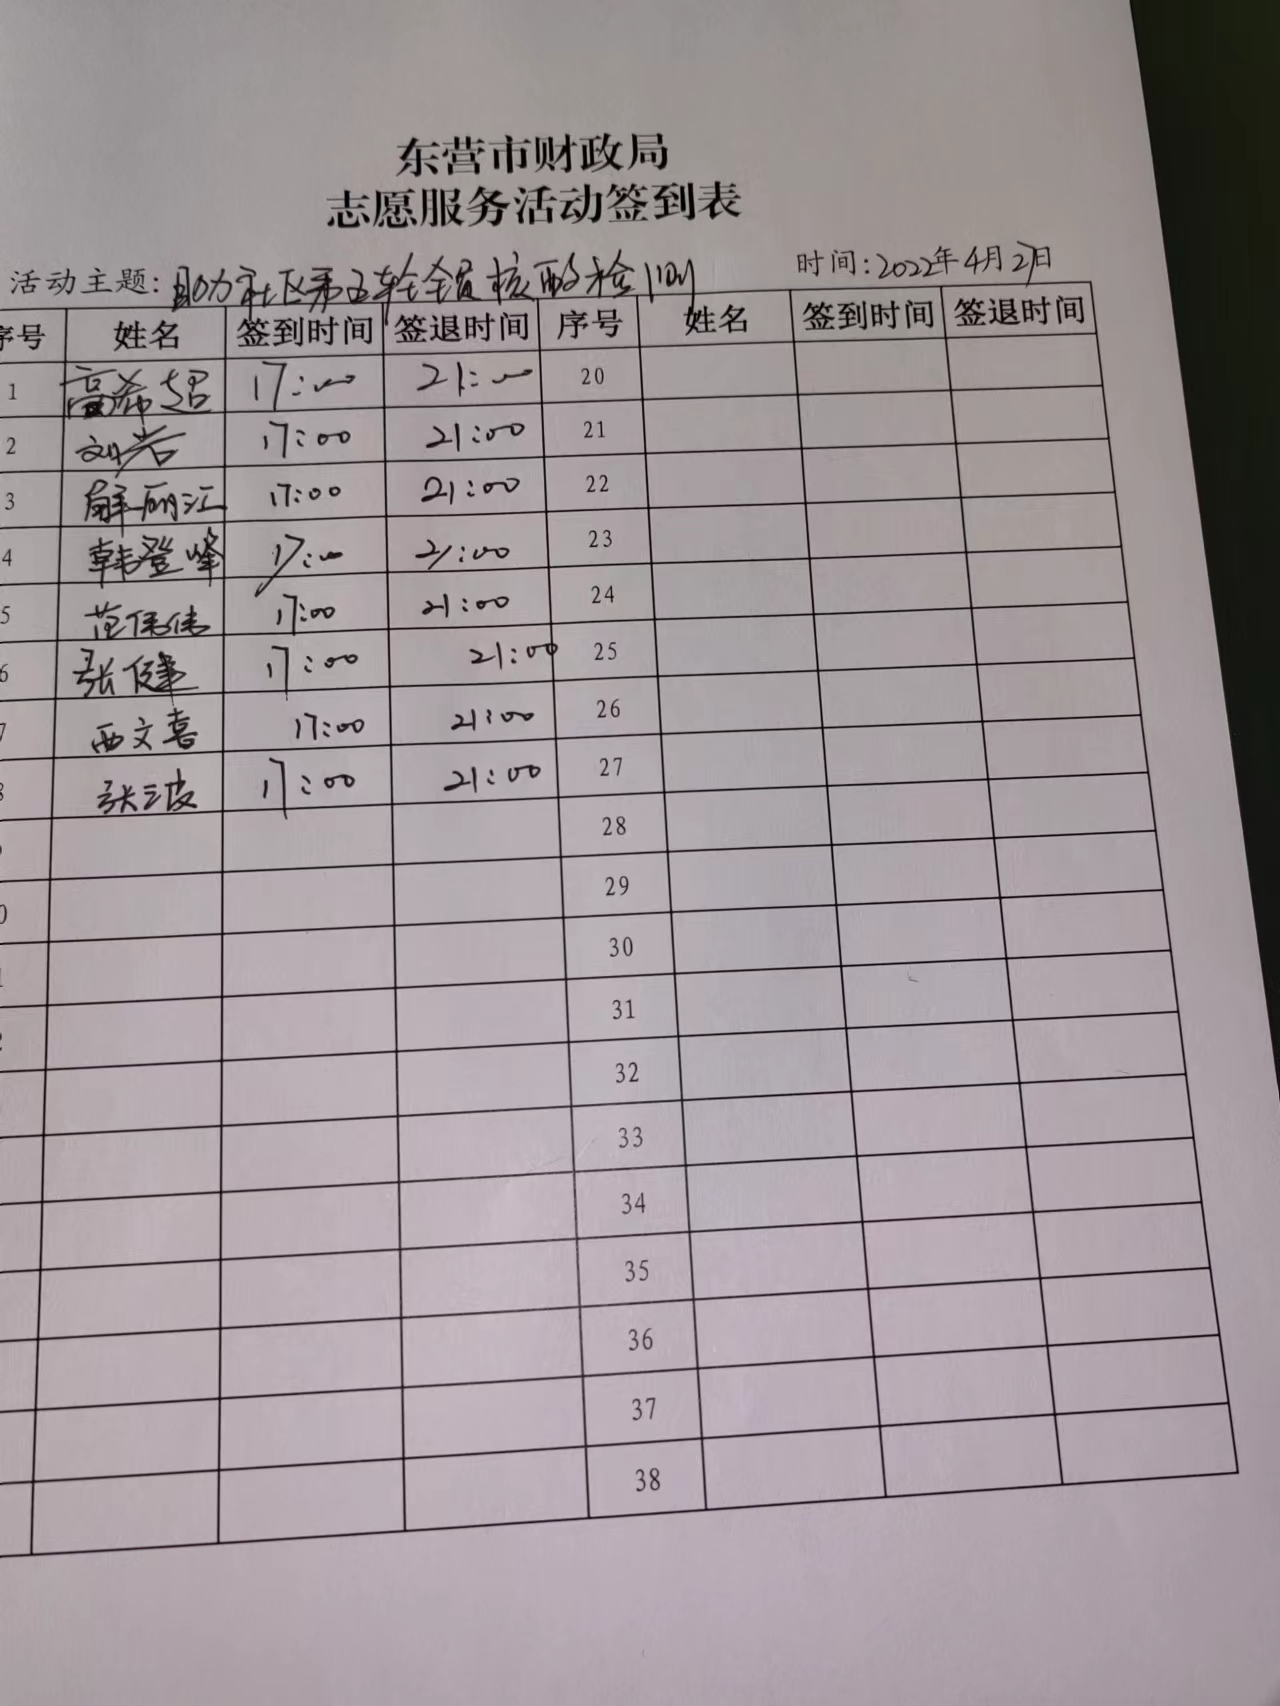 东营市财政局
志愿服务活动签到表
活动主题：助力社区第五轮全员核酸检测 时间：2022年4月27日
序号 姓名 签到时间 签退时间 序号 姓名 签到时间 签退时间
1 高希超 17:00 21:00 20
2 刘岩 17:00 21:00 21
3 解丽江 17:00 21:00 22
4 韩登峰 17:00 21:00 23
5 范伟伟 17:00 21:00 24
6 张健 17:00 21:00 25
7 西文喜 17:00 21:00 26
8 张波 17:00 21:00 27
28
29
30
31
32
33
34
35
36
37
38